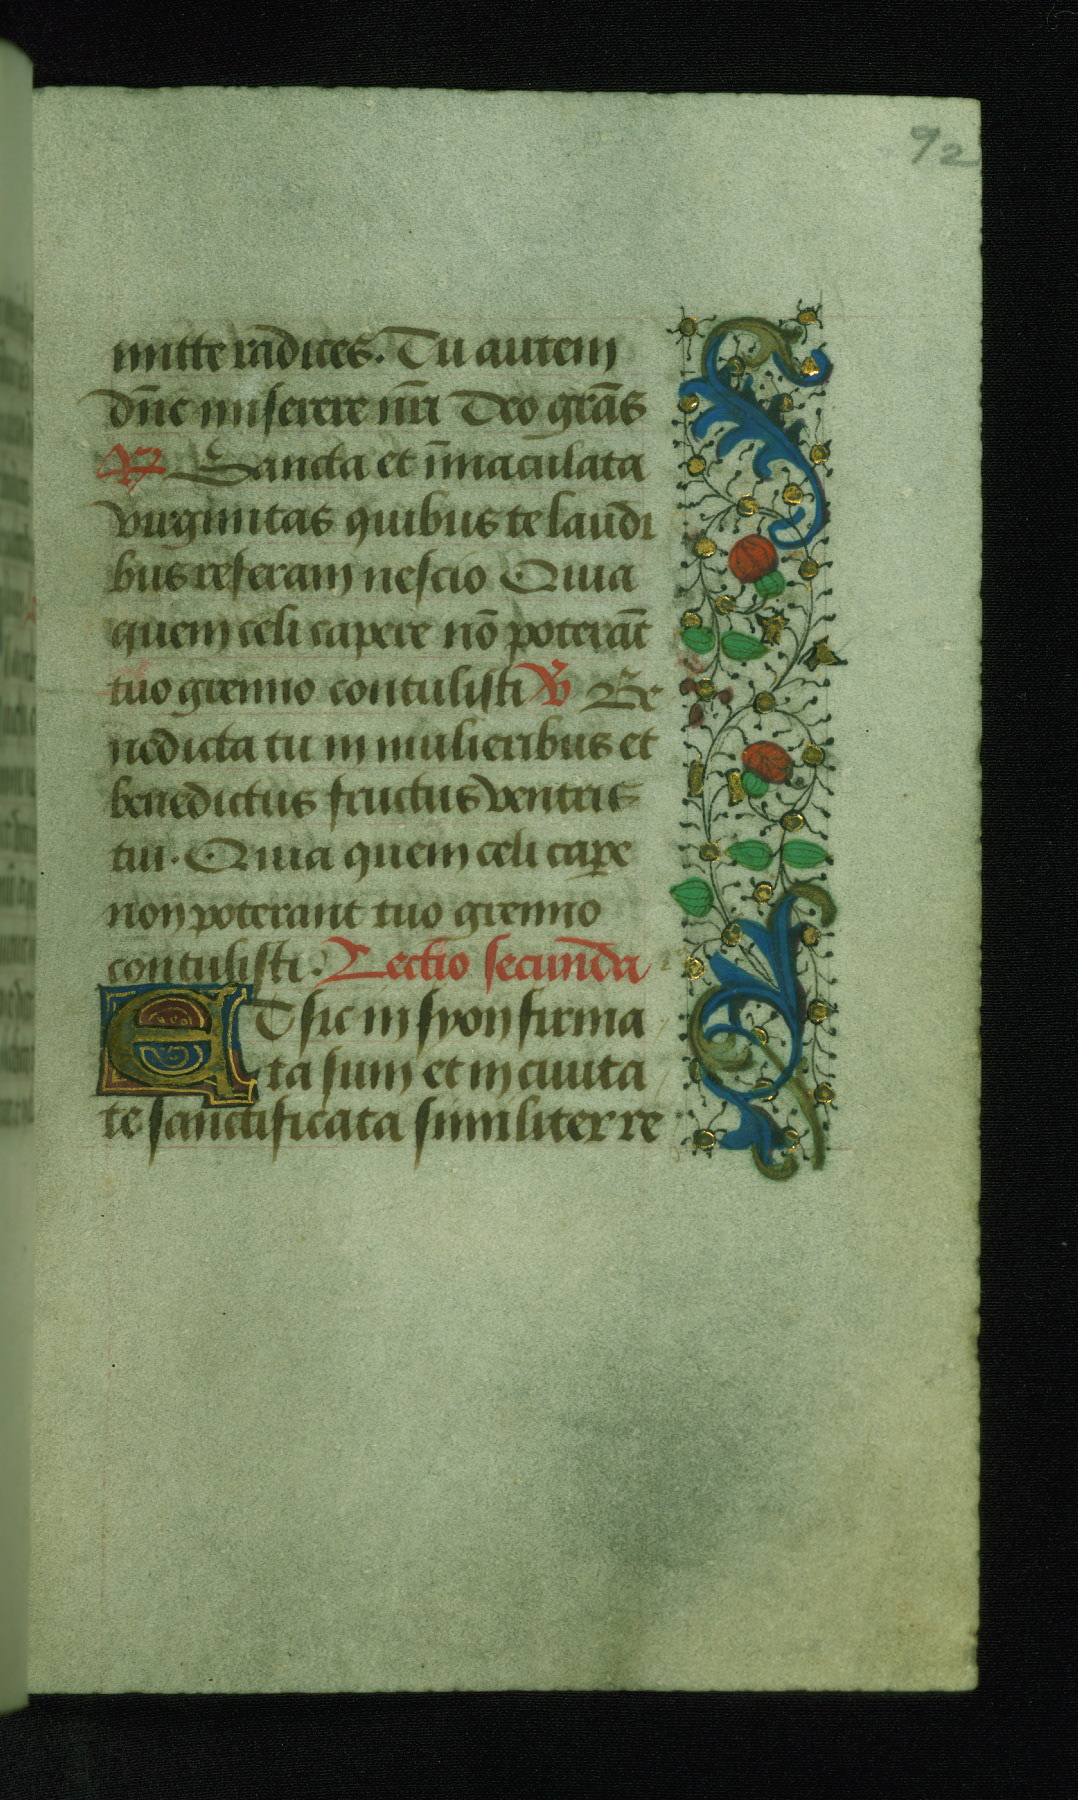 92
mitte radices. Tu autem
dn̄e miserere nr̄i Deo grās
R Sancta et īmaculata
virginitas quibus te laudi
bus referam nescio Quia
quem celi capere nō poterāt
tuo gremio contulisti V Be
nedicta tu in mulieribus et
benedictus fructus ventris
tui. Quia quem celi cape
non poterant tuo gremio
contulisti. Lectio secunda
ET sic in syon firma
ta sum et in ciuita
te sanctificata similiter re